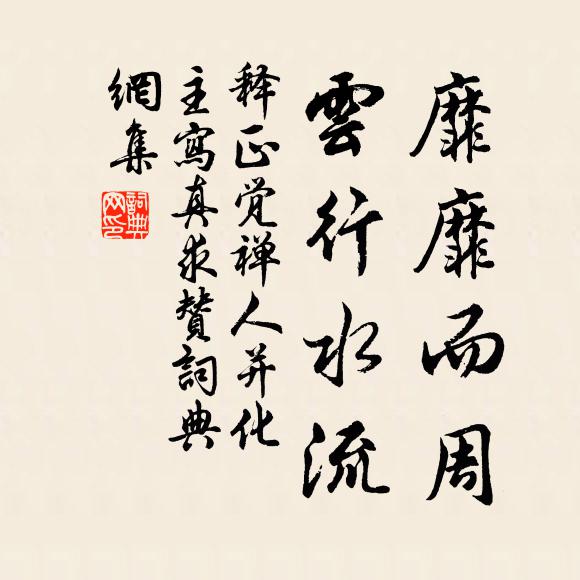 靡靡而周
雲行水流
释正觉禅人并化
主寫真求贊詞典
網集
詞典
网印